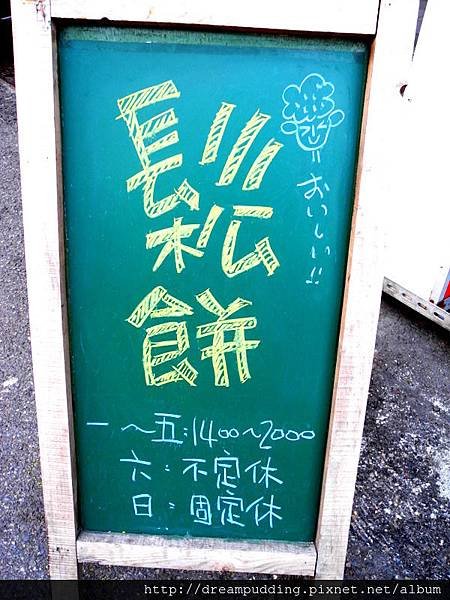 鬆餅
おいしい!!
一~五:1400~2000
六:不定休
日:固定休
http://dreampudding.pixnet.net/album